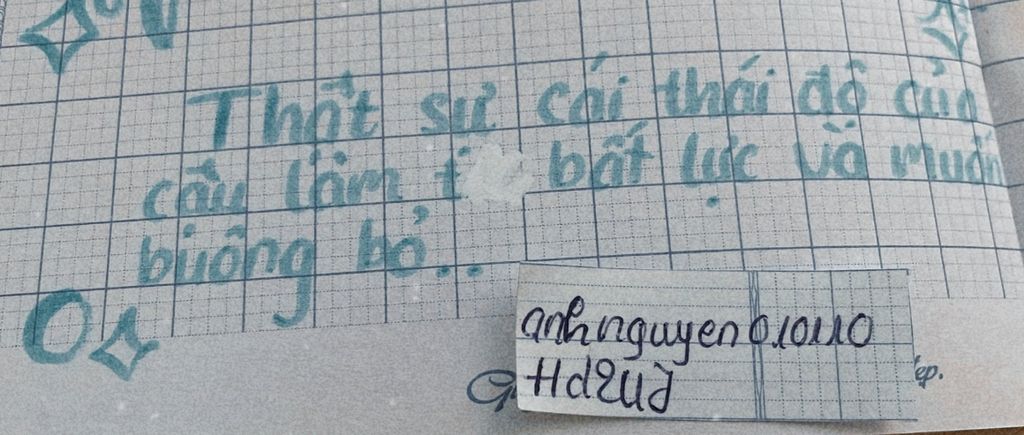 Thật sự cái thái độ của
cậu làm t bất lực và muốn
buông bỏ..
anhnguyen010110
ep.